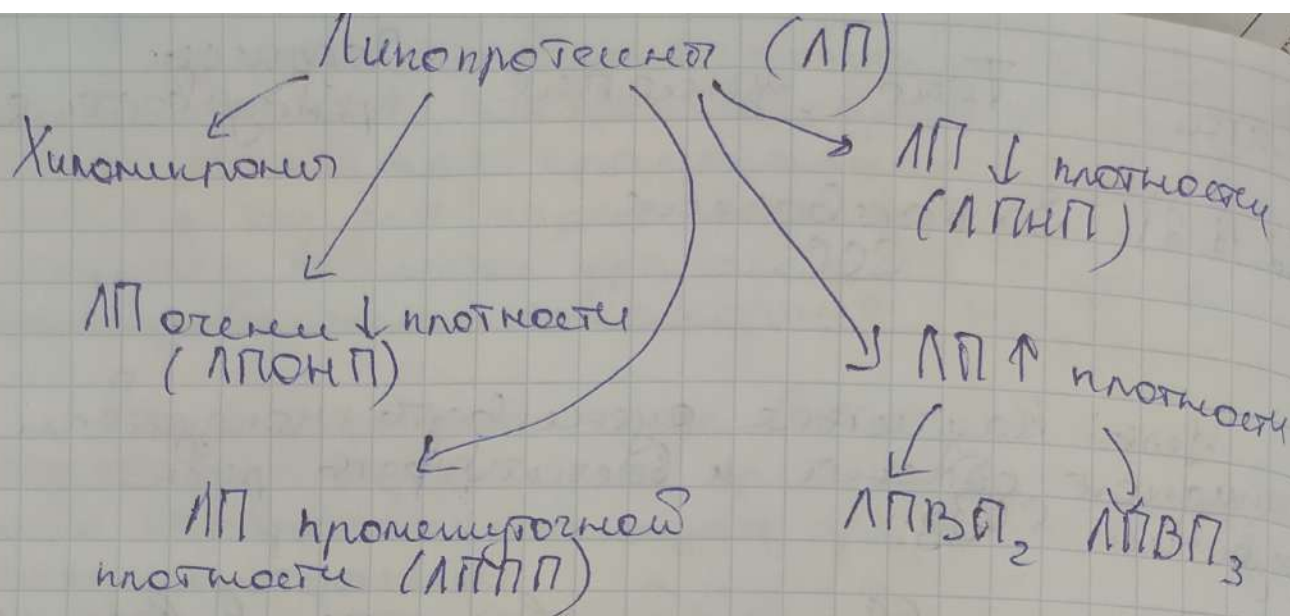 Липопротеины (ЛП)
Хиломикроны
ЛП ↓ плотности
(ЛПНП)
ЛП очень ↓ плотности
(ЛПОНП)
ЛП ↑ плотности
ЛПВП₂ ЛПВП₃
ЛП промежуточной
плотности (ЛППП)